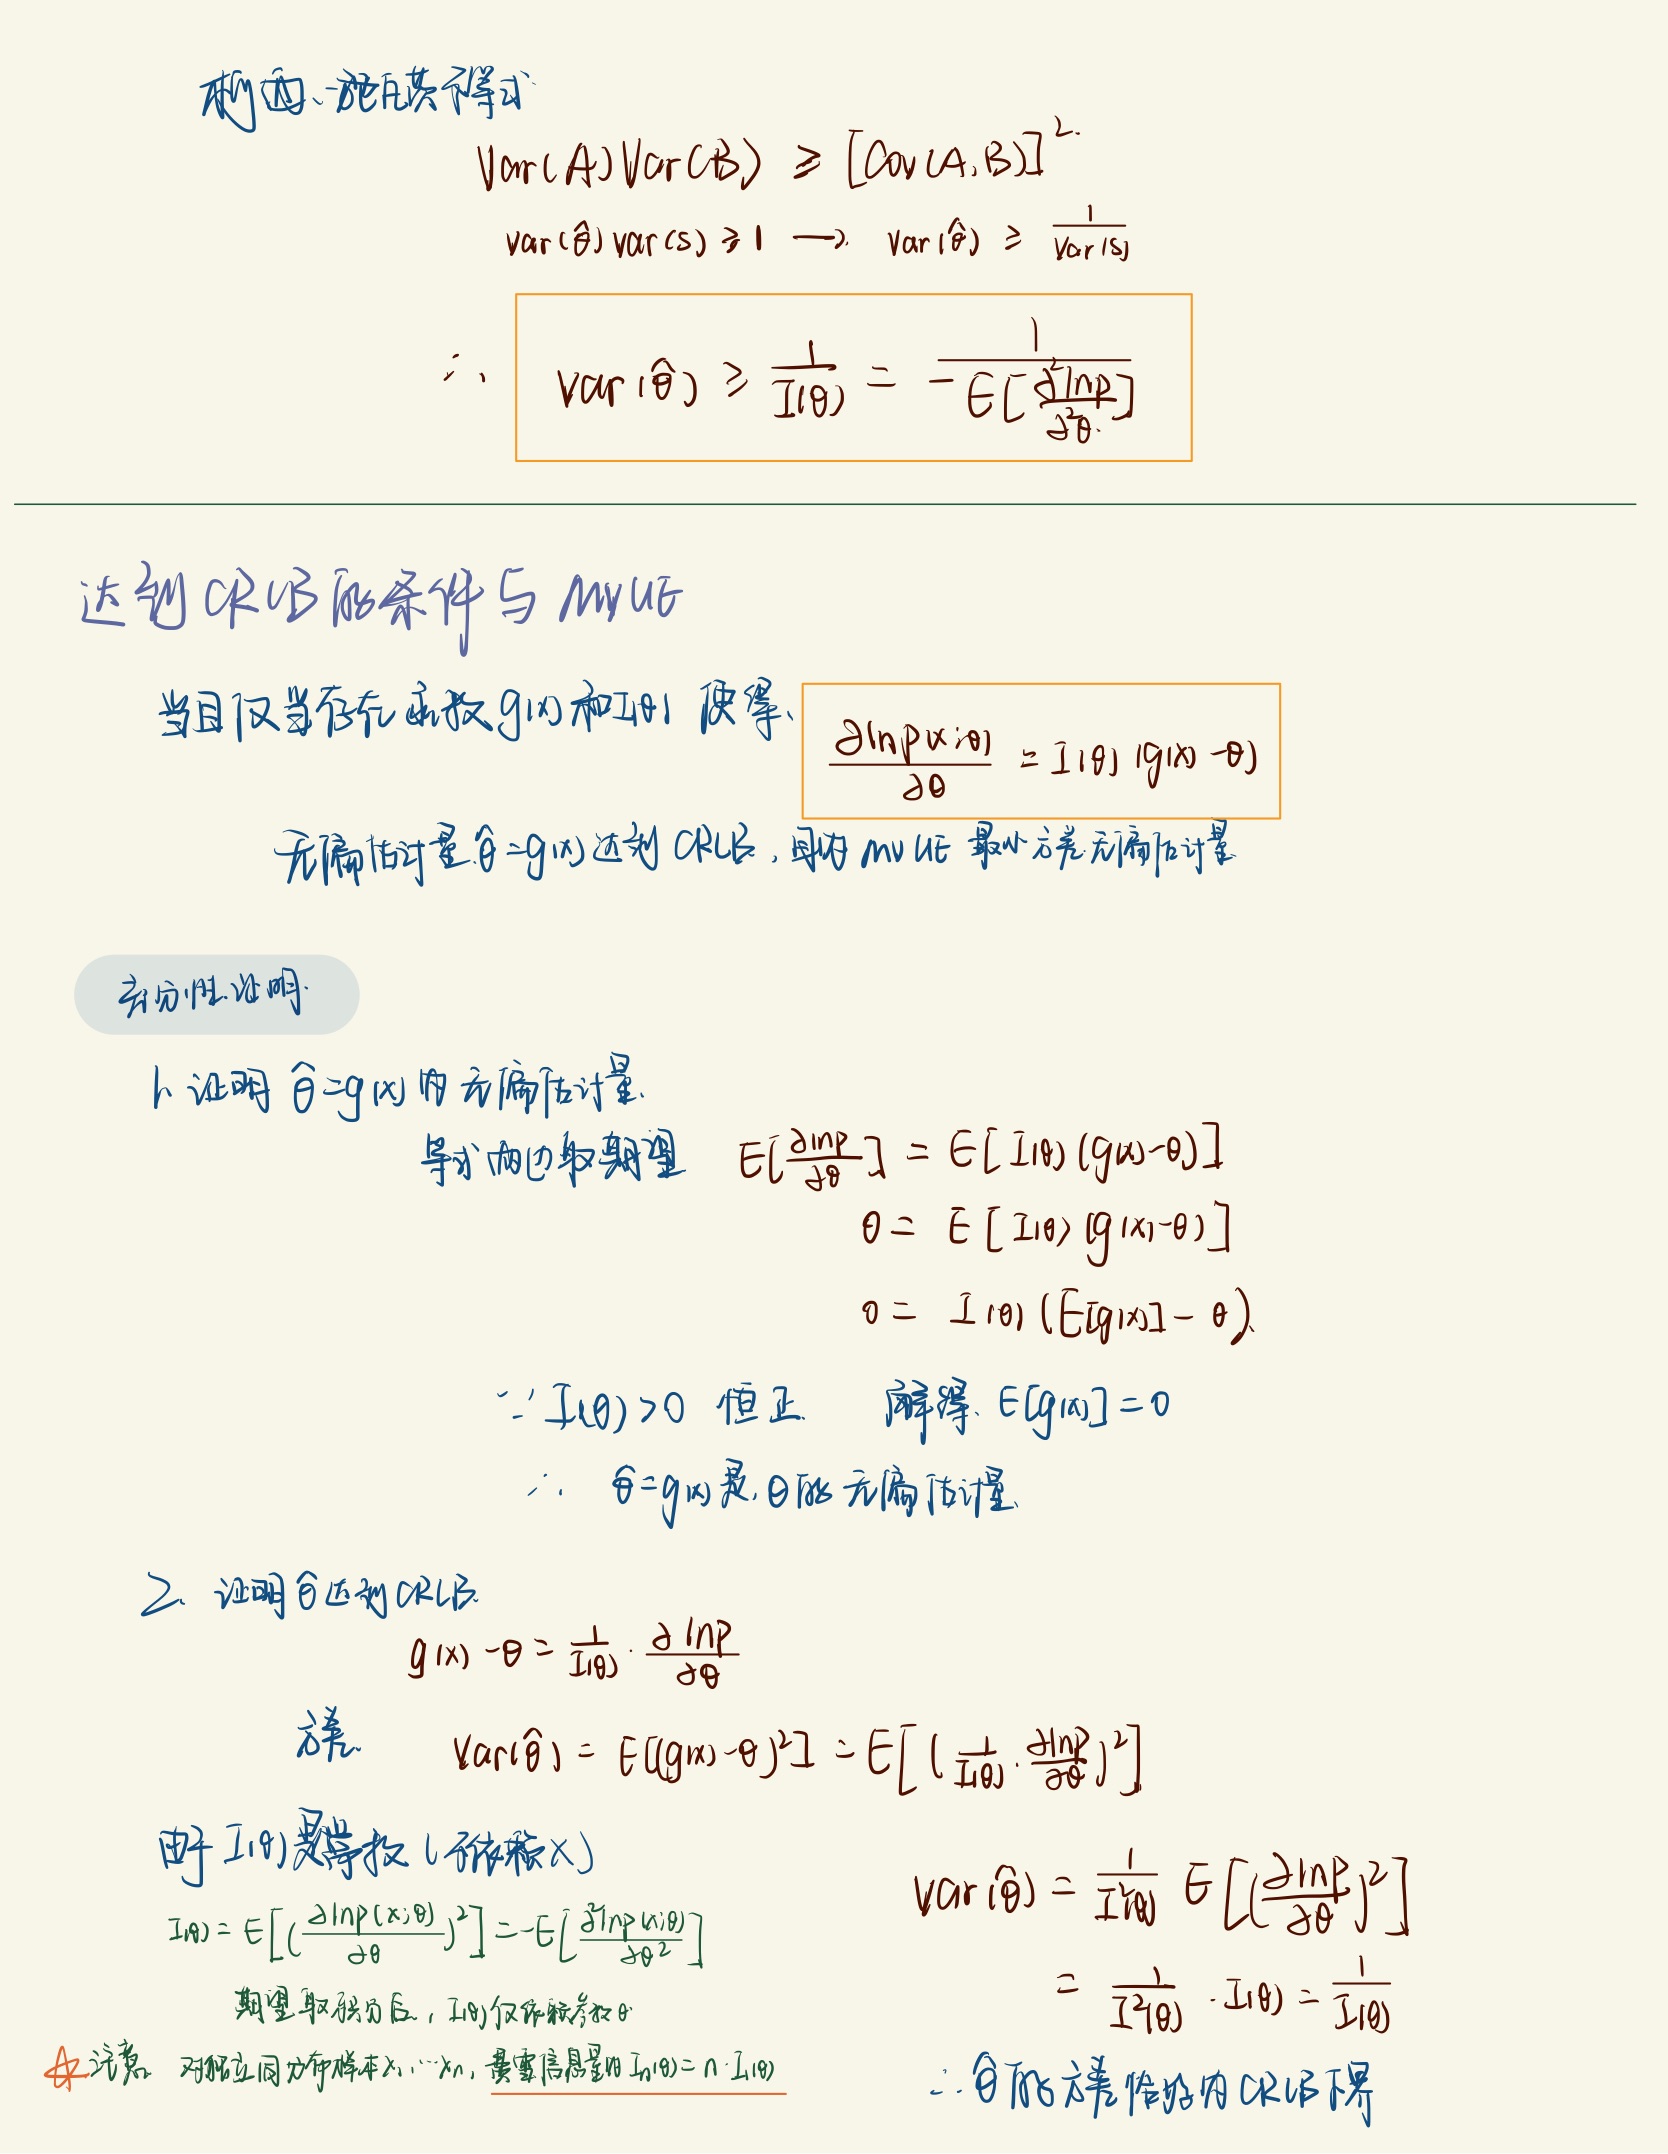 柯西-施瓦茨不等式
Var(A)Var(B) ≥ [Cov(A,B)]²
var(θ̂)var(s) ≥ 1 → var(θ̂) ≥ 1/Var(s)
∴ var(θ̂) ≥ 1/I(θ) = 1/-E[∂²lnp/∂²θ]
达到CRLB的条件与MVUE
当且仅当存在函数g(x)和I(θ) 使得 ∂lnp(x;θ)/∂θ = I(θ)(g(x)-θ)
无偏估计量 θ̂=g(x)达到CRLB,且为MVUE 最小方差无偏估计量
充分性证明
1. 证明 θ̂=g(x)为无偏估计量.
等式两边取期望 E[∂lnp/∂θ] = E[I(θ)(g(x)-θ)]
0 = E[I(θ)(g(x)-θ)]
0 = I(θ)(E[g(x)]-θ)
∵ I(θ)>0 恒正 解得 E[g(x)]=θ
∴ θ̂=g(x)是θ的无偏估计量
2. 证明θ̂达到CRLB
g(x)-θ = 1/I(θ) · ∂lnp/∂θ
方差 Var(θ̂) = E[(g(x)-θ)²] = E[(1/I(θ) · ∂lnp/∂θ)²]
由于I(θ)是常数(不依赖x)
var(θ̂) = 1/I²(θ) E[(∂lnp/∂θ)²]
I(θ) = E[(∂lnp(x;θ)/∂θ)²] = -E[∂²lnp(x;θ)/∂θ²]
= 1/I²(θ) · I(θ) = 1/I(θ)
期望取积分后,I(θ)仅依赖参数θ
☆注意 对独立同分布样本x₁…xₙ,费雪信息量为Iₙ(θ)=n·I₁(θ)
∴ θ̂的方差恰好为CRLB下界